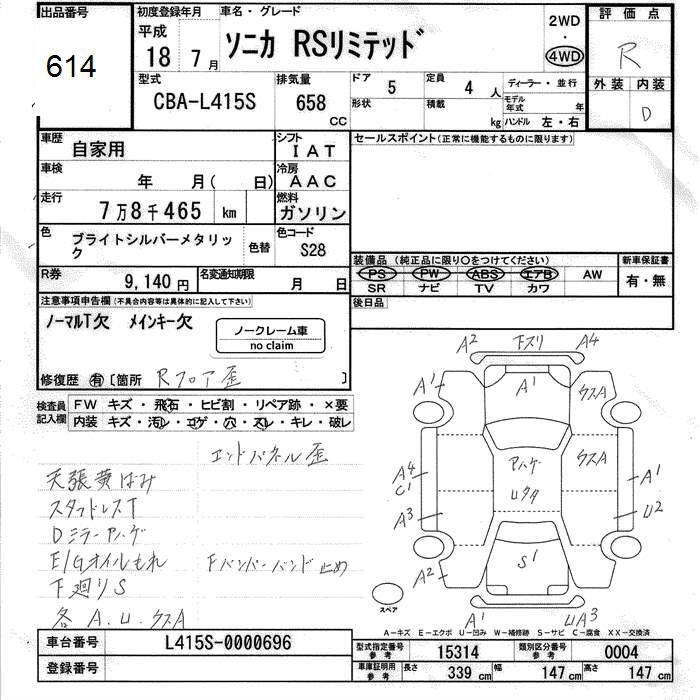 出品番号
614
初度登録年月
平成
18 7月
車名・グレード
ソニカ RSリミテッド
2WD
・
4WD
評価点
R
外装 内装
D
型式
CBA-L415S
排気量
658
CC
ドア
5
定員
4 人
ディーラー・並行
形状
積載
kg
モデル年式
年
ハンドル 左・右
車歴
自家用
シフト
IAT
セールスポイント(正常に機能するものに限ります)
車検
年 月( 日)
冷房
AAC
走行
7万8千465 km
燃料
ガソリン
色
ブライトシルバーメタリック
色替
色コード
S28
装備品 (純正品に限り○をつけてください)
新車保証書
PS PW ABS エアB AW
SR ナビ TV カワ
有・無
R券
9,140円
名変通知期限
月 日
後日品
注意事項申告欄(不具合内容等は具体的に記入して下さい)
ノーマルT欠 メインキー欠
ノークレーム車
no claim
修復歴 有 〔箇所 Rフロア歪 〕
検査員記入欄
FW キズ・飛石・ヒビ割・リペア跡・×要
内装 キズ・汚レ・コゲ・穴・スレ・キレ・破レ
エンドパネル歪
天張黄ばみ
スタッドレスT
Dミラーアハゲ
E/Gオイルもれ Fバンパーバンド止め
下廻りS
各 A.U.クスA
A2 下スリ A4
A1 A1 クスA
A4
C1
アハゲ クスA A1
A3 U2
A2 S1
A1 UA3
スペア
A-キズ E-エクボ U-凹み W-補修跡 S-サビ C-腐食 XX-交換済
車台番号
L415S-0000696
登録番号
型式指定番号
参考
15314
類別区分番号
参考
0004
車庫証明用
参考
長さ 339 cm 幅 147 cm 高さ 147 cm